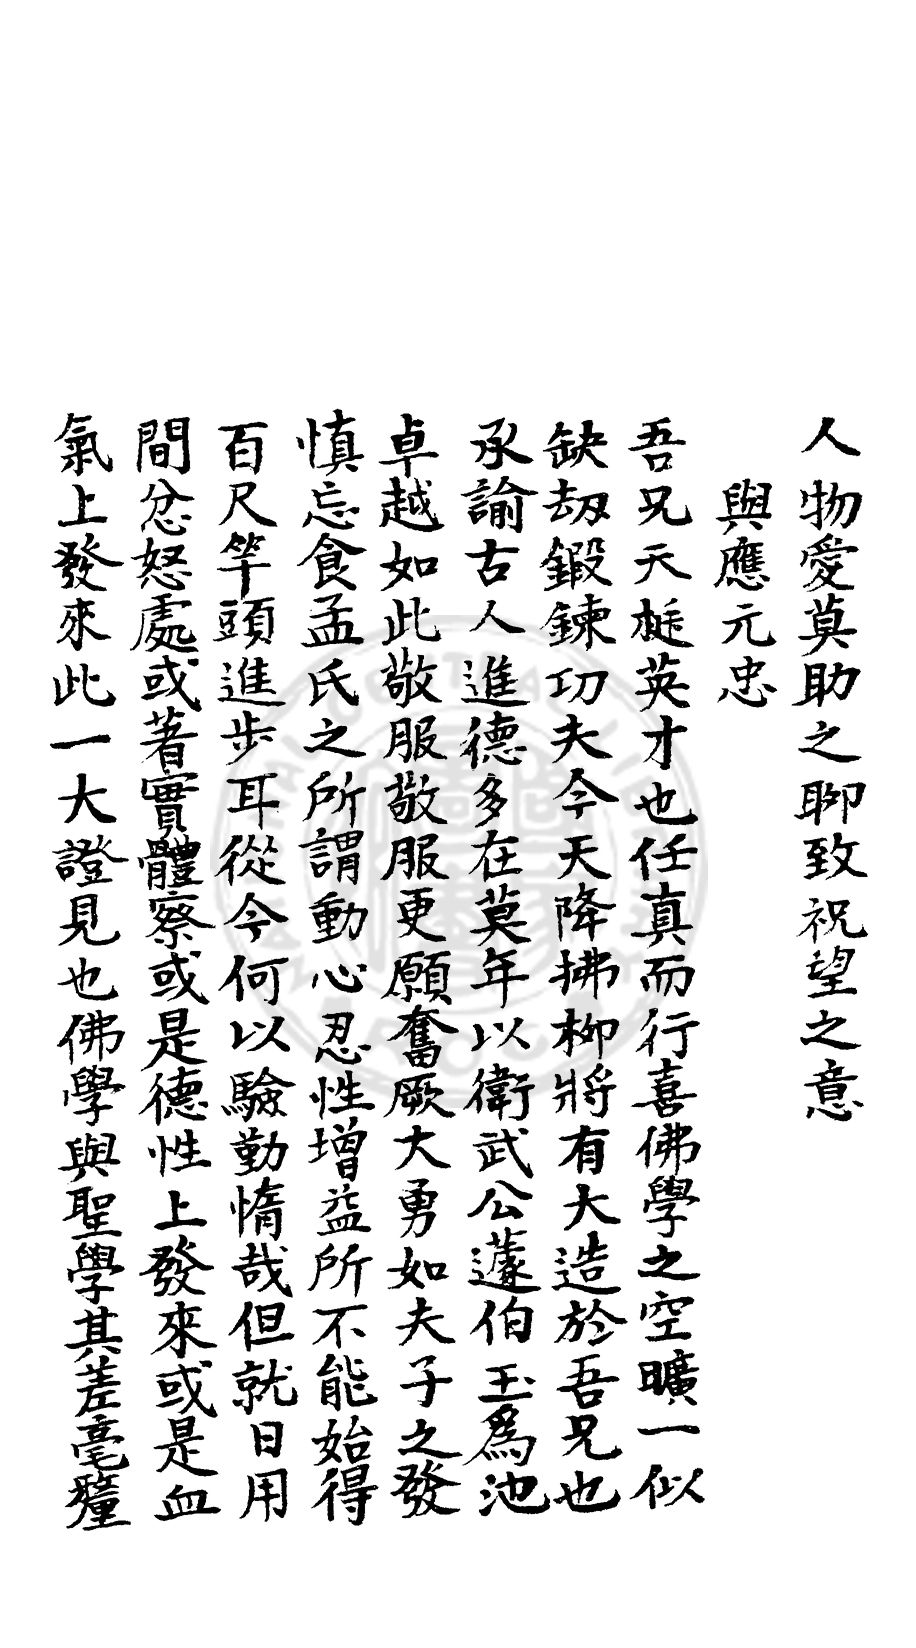 人物愛莫助之聊致祝望之意
與應元忠
吾兄天挺英才也任真而行喜佛學之空曠一似
缺刼鍛鍊功夫今天降拂柳將有大造於吾兄也
承諭古人進德多在莫年以衛武公蘧伯玉為池
卓越如此敬服敬服更願奮厥大勇如夫子之發
慎忘食孟氏之所謂動心忍性增益所不能始得
百尺竿頭進步耳從今何以驗勤惰哉但就日用
間忿怒處或著實體察或是德性上發來或是血
氣上發來此一大證見也佛學與聖學其差毫釐